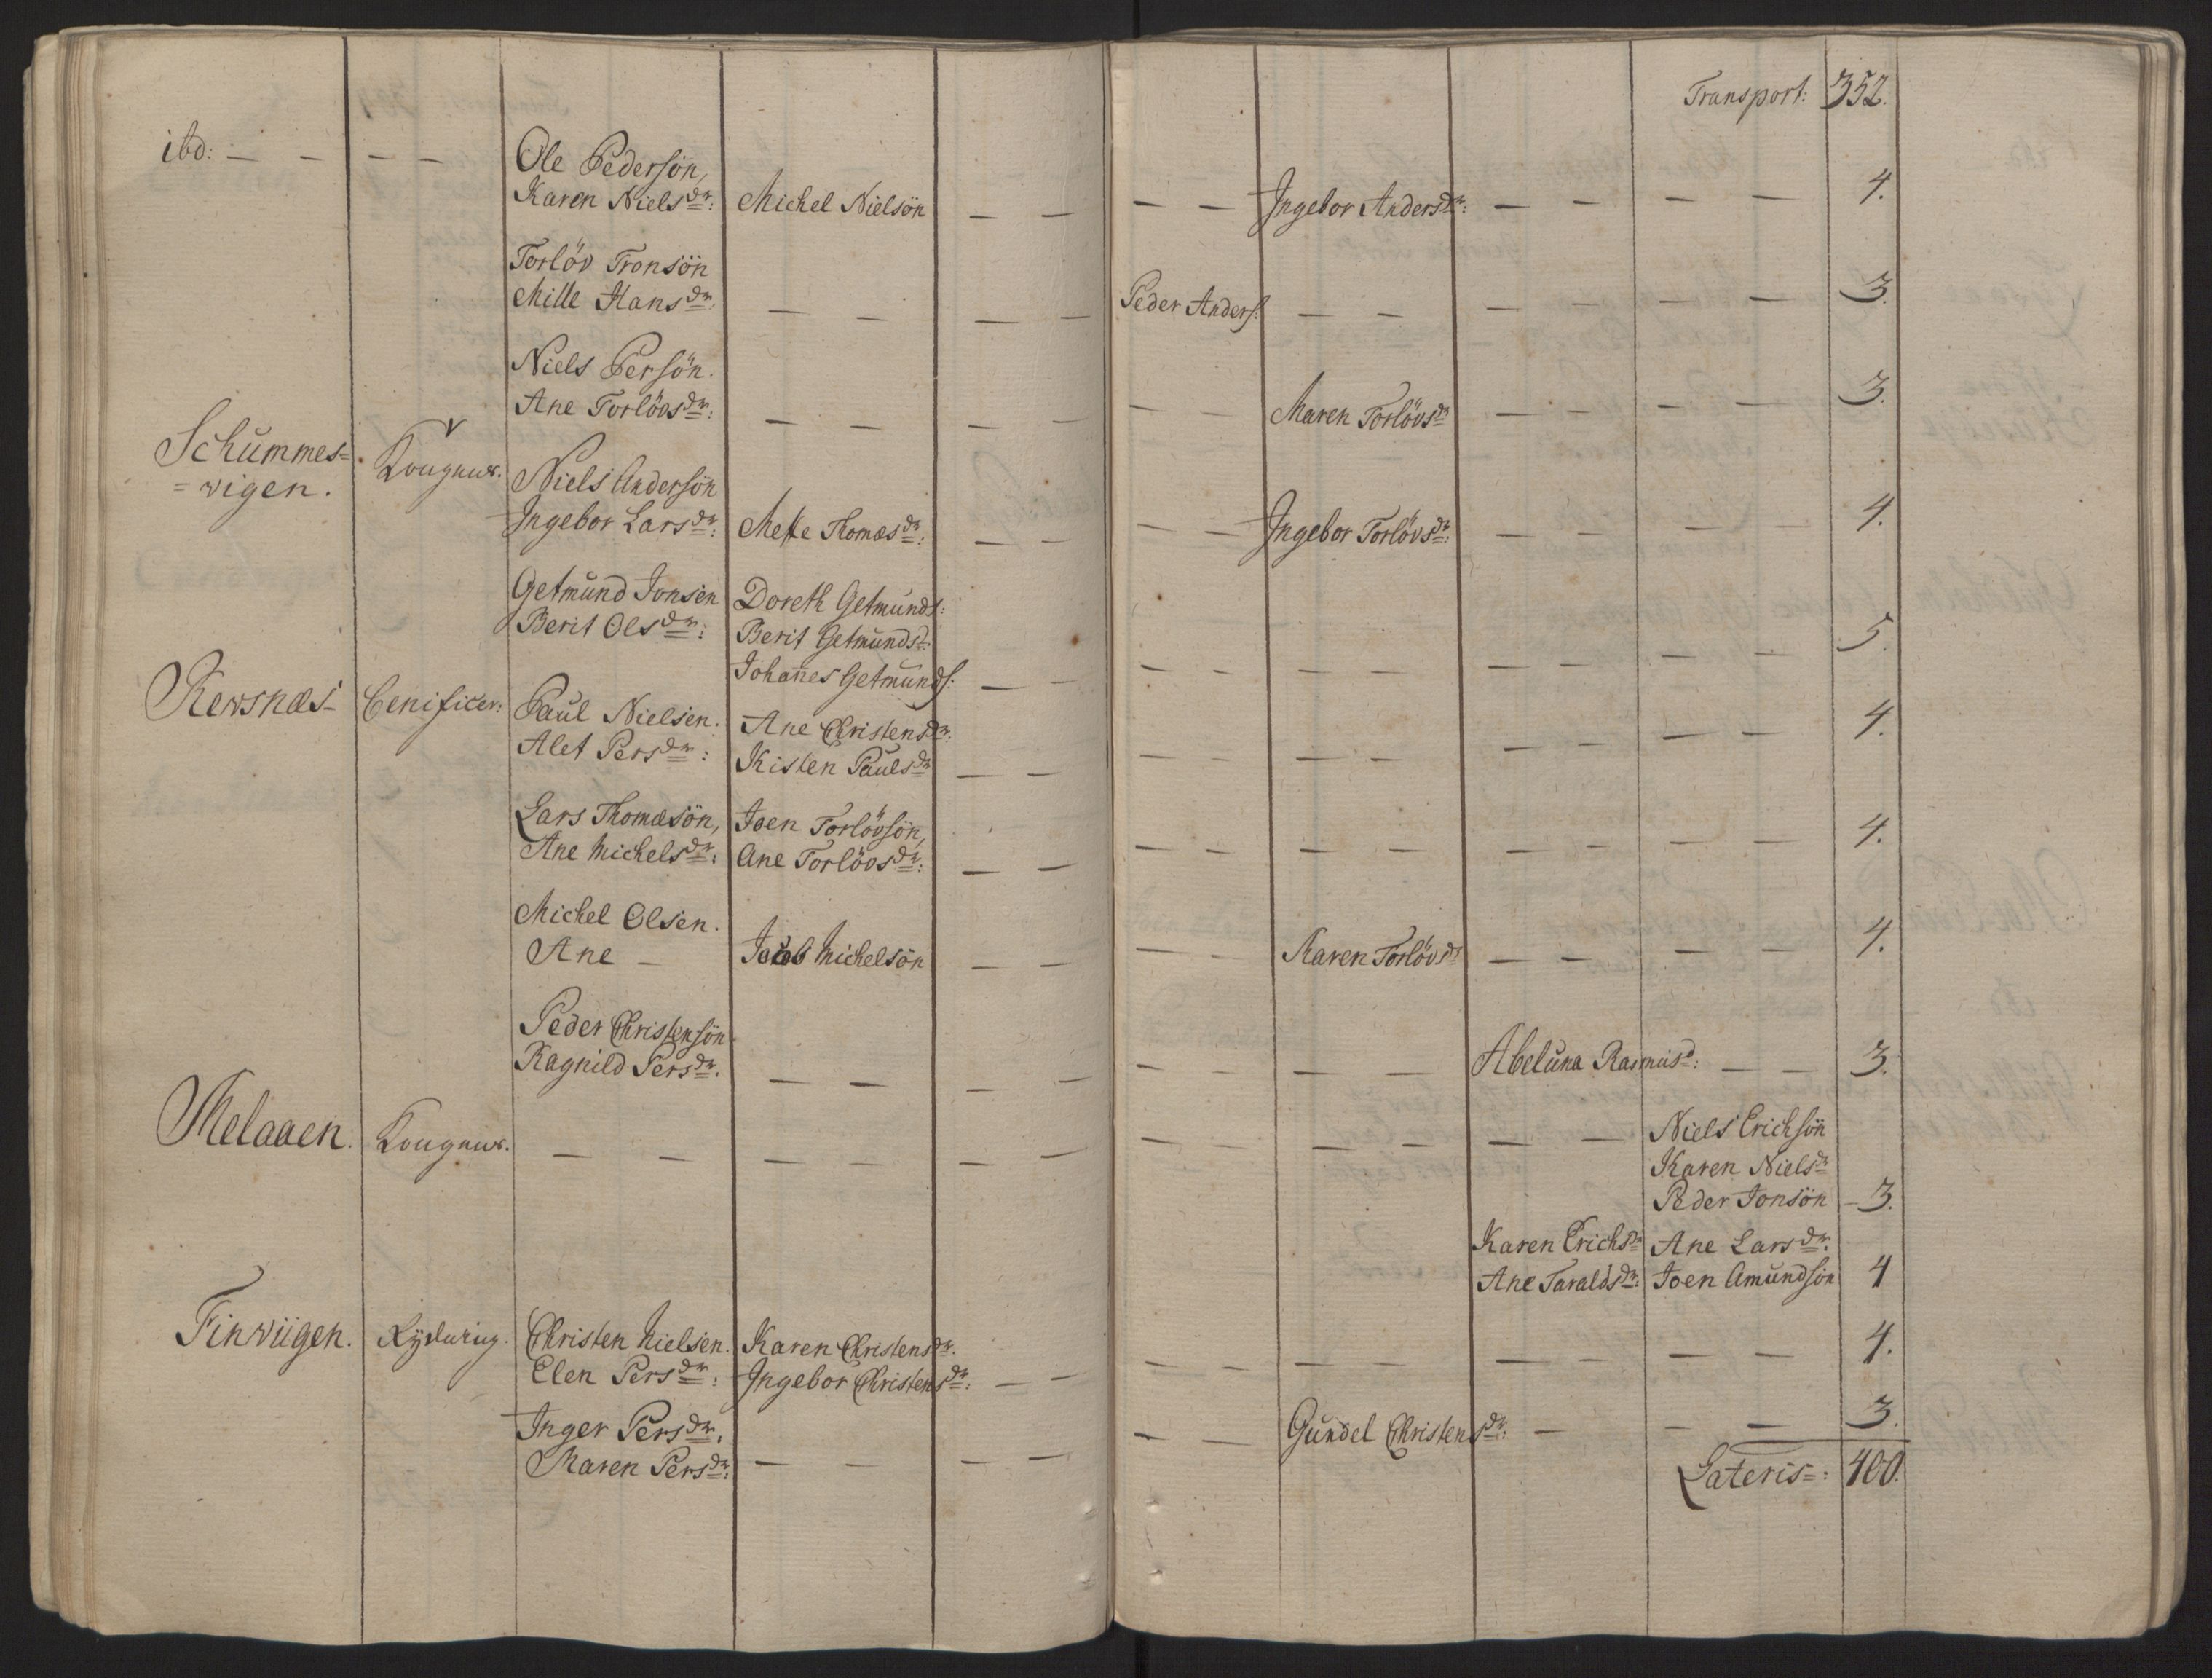 Transport: 352.
ibd: — — — —
Ole Pedersön,
Karen Nielsdr: Michel Nielsön — — — — Ingebor Andersdr: — — — — 4.
Torlöv Tronsön
Mille Hansdr. — — — — Peder Anders: — — — — — — 3.
Niels Persön.
Ane Torlövsdr: — — — — — — Maren Torlövsdr — — — — 3.
Schummes= Kongens.
=vigen.
Niels Andersön
Ingebor Larsdr: Mette Thomasdr: — — — — Ingebor Torlövsdr: — — — — 4.
Getmund Jonsen Doreth Getmunds:
Berit Olsdr: Berit Getmundsd:
Johañes Getmunds: — — — — — — — — — — 5.
Revsnæs Benificer:
Paul Nielsen. Ane Christensdr:
Alet Persdr: Kisten Paulsdr — — — — — — — — — — 4.
Lars Thomæsön, Joen Torlövsön,
Ane Michelsdr: Ane Torlövsdr: — — — — — — — — — — 4.
Michel Olsen.
Ane — Jacob Michelsön — — — — Karen Torlövsdr — — — — 4.
Peder Christensön
Ragnild Persdr. — — — — — — — — Abeluna Rasmusd: — — 3.
Melaaen. Kongens. — — — — — — — — — — — — Niels Erichsön
Karen Nielsdr
Peder Jonsön — 3.
Karen Erichsdr Ane Larsdr.
Ane Taraldsdr: Joen Amundsön 4
Finviigen.
Christen Nielsen. Karen Christensdr.
Elen Persdr: Ingebor Christensdr: — — — — — — — — — 4.
Inger Persdr,
Maren Persdr: — — — — — — Gundel Christensdr: — — — 3.
Lateris: 400.